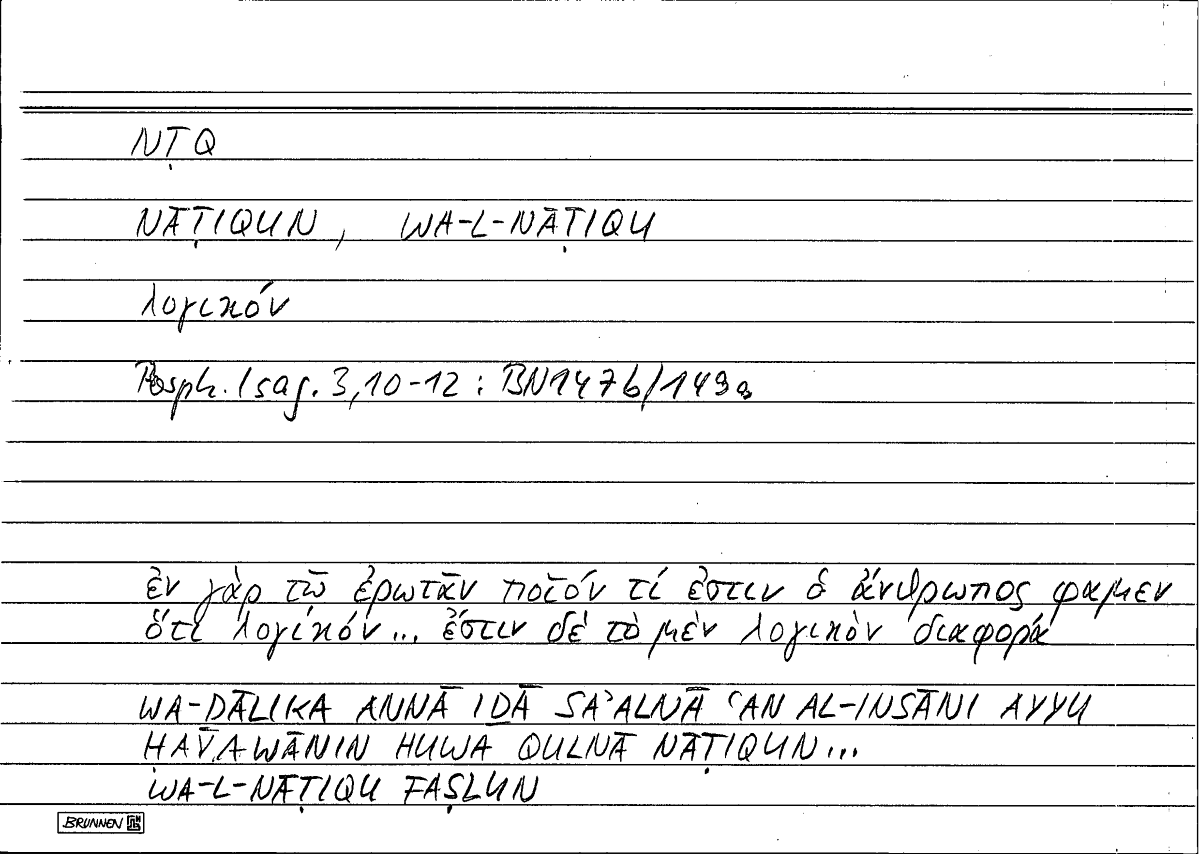 NṬQ
NĀṬIQUN, WA-L-NĀṬIQU
λογικόν
Porph. Isag. 3,10-12 : BN147b/149a
ἐν γὰρ τῷ ἐρωτᾶν ποῖόν τί ἐστιν ὁ ἄνθρωπος φαμεν
ὅτι λογικόν... ἔστιν δὲ τὸ μὲν λογικὸν διαφορά
WA-ḎĀLIKA ANNĀ IḎĀ SAʾALNĀ ʿAN AL-INSĀNI AYYU
ḤAYAWĀNIN HUWA QULNĀ NĀṬIQUN...
WA-L-NĀṬIQU FAṢLUN
BRUNNEN